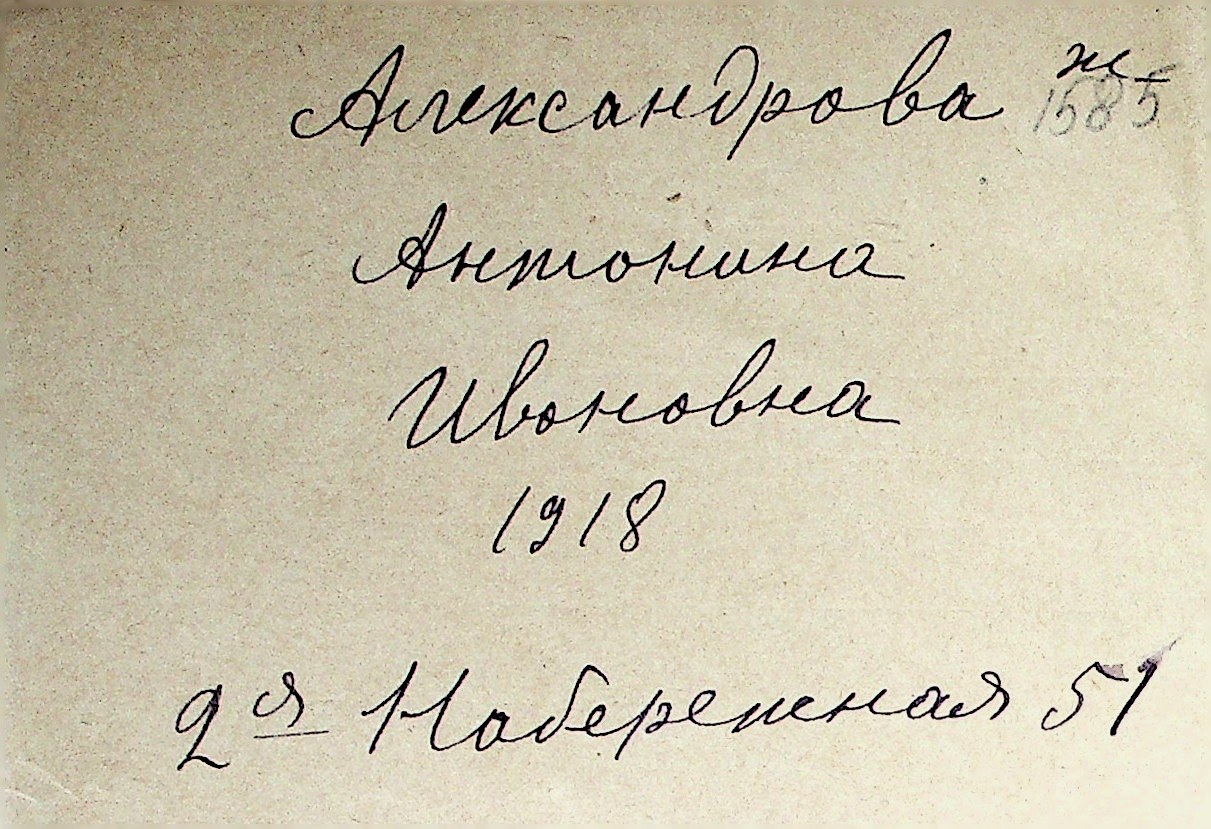 Александрова ж
1585
Антонина
Ивановна
1918
2я Набережная 51